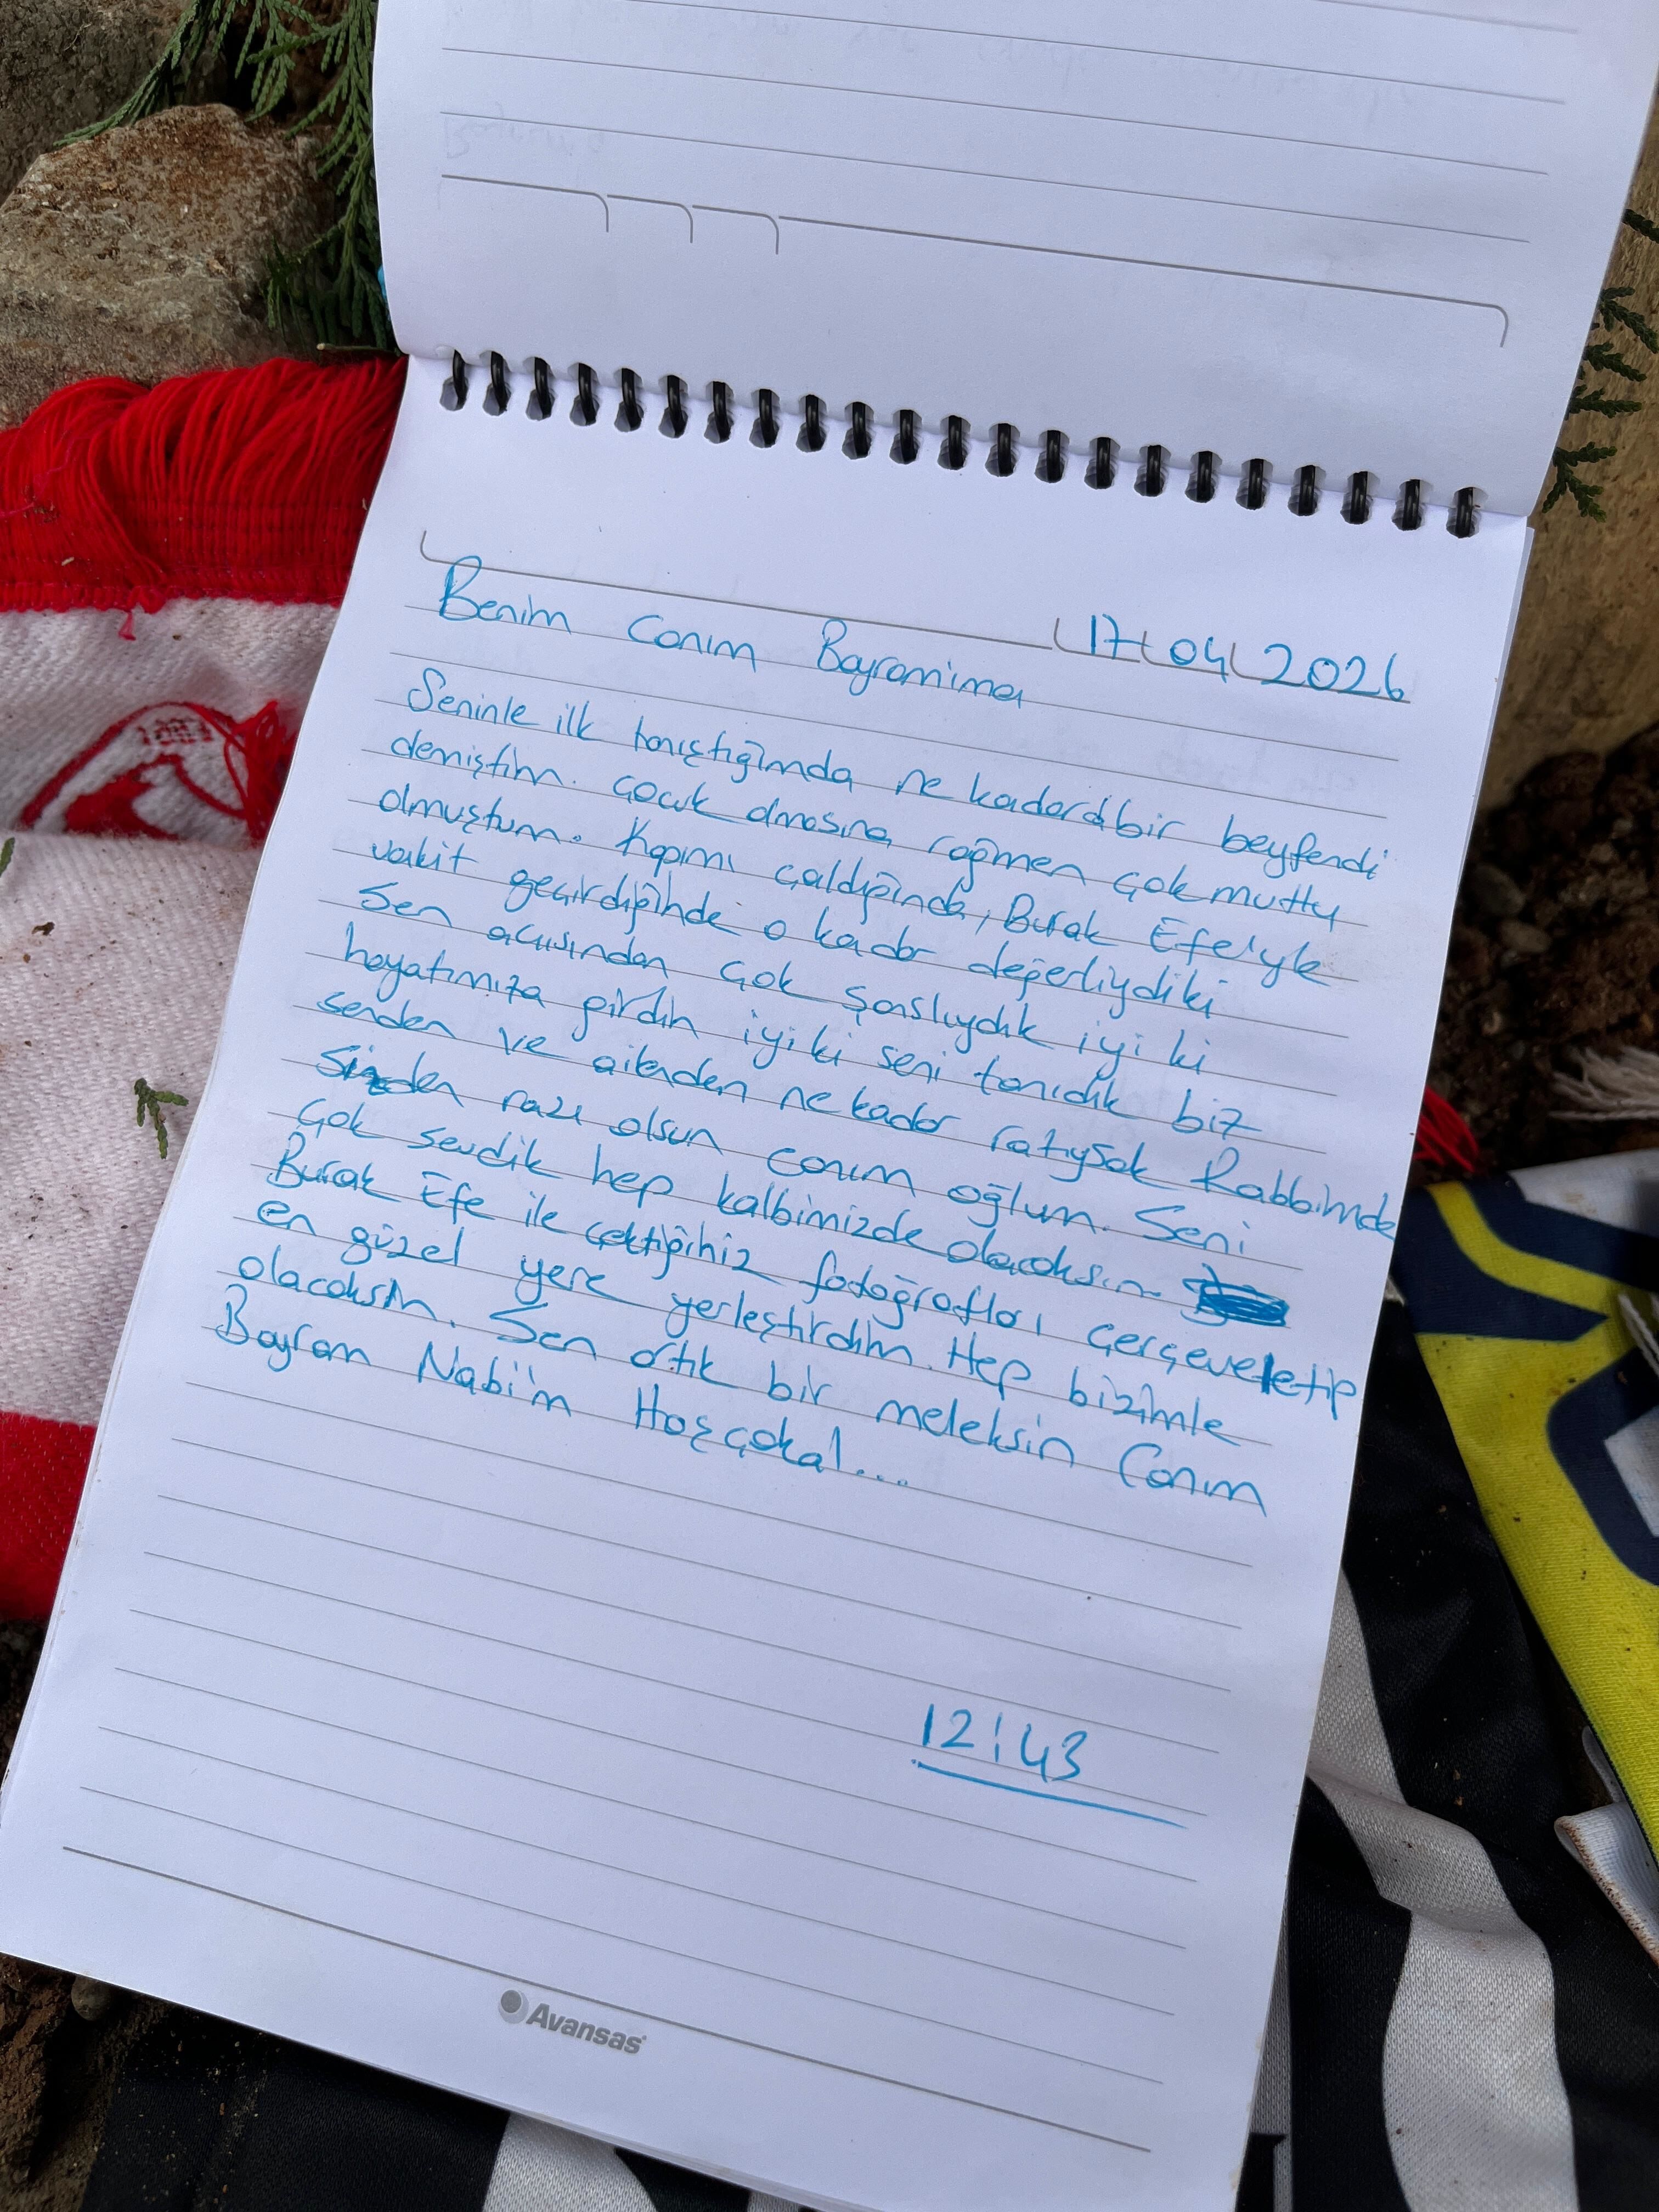 17 04 2026
Benim Canım Bayramıma
Seninle ilk tanıştığımda ne kadarda bir beyfendi
demiştim. Çocuk olmasına rağmen çok mutlu
olmuştum. Kapımı çaldığında, Burak Efe'yle
vakit geçirdiğinde o kadar değerliydiki
Sen açısından çok şanslıydık iyi ki
hayatımıza girdin iyi ki seni tanıdık biz
senden ve ailenden ne kadar razıysak Rabbimde
Sizden razı olsun canım oğlum. Seni
Çok sevdik hep kalbimizde olacaksın.
Burak Efe ile çektiğiniz fotoğrafları çerçeveletip
en güzel yere yerleştirdim. Hep bizimle
olacaksın. Sen artık bir meleksin Canım
Bayram Nabi'm Hoşçakal...
12:43
Avansas